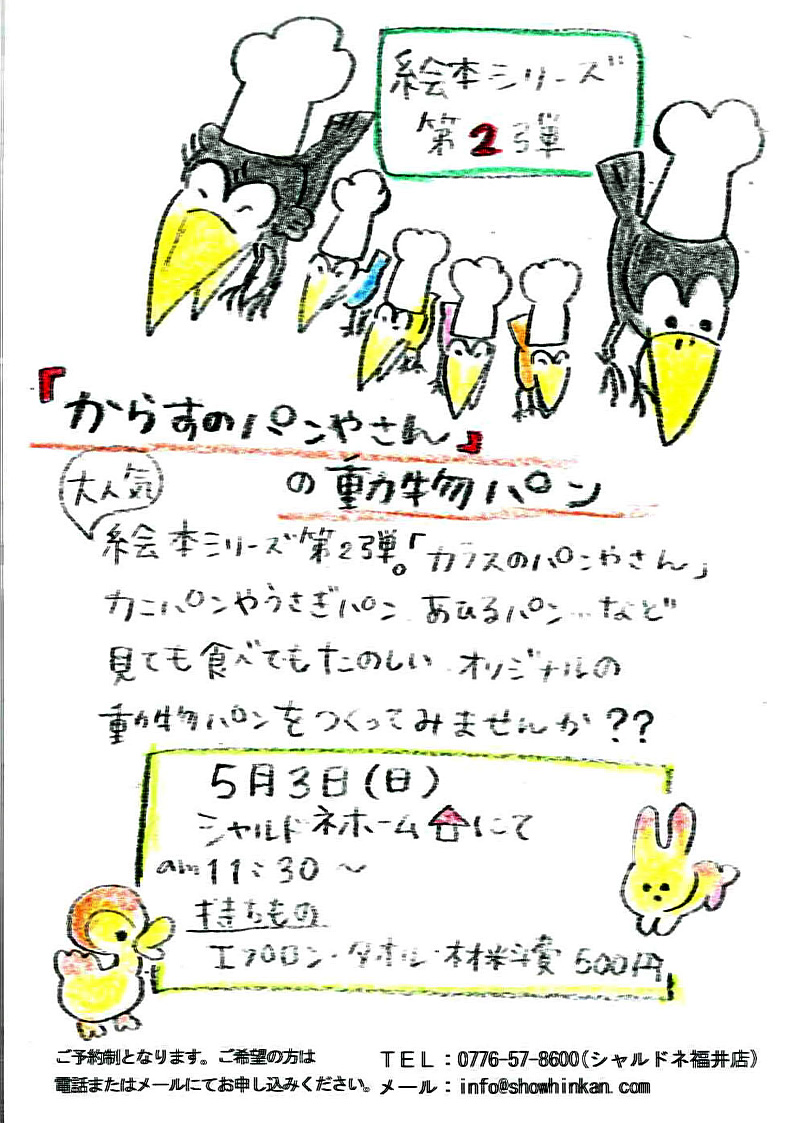 絵本シリーズ
第2弾
『からすのパンやさん』
の動物パン
大人気
絵本シリーズ第2弾。「カラスのパンやさん」
カニパンやうさぎパン あひるパン...など
見ても食べてもたのしい オリジナルの
動物パンをつくってみませんか??
5月3日(日)
シャルドネホームにて
am11:30〜
持ちもの
エプロン・タオル・材料費 500円
ご予約制となります。ご希望の方は
電話またはメールにてお申し込みください。
TEL:0776-57-8600(シャルドネ福井店)
メール:info@showhinkan.com